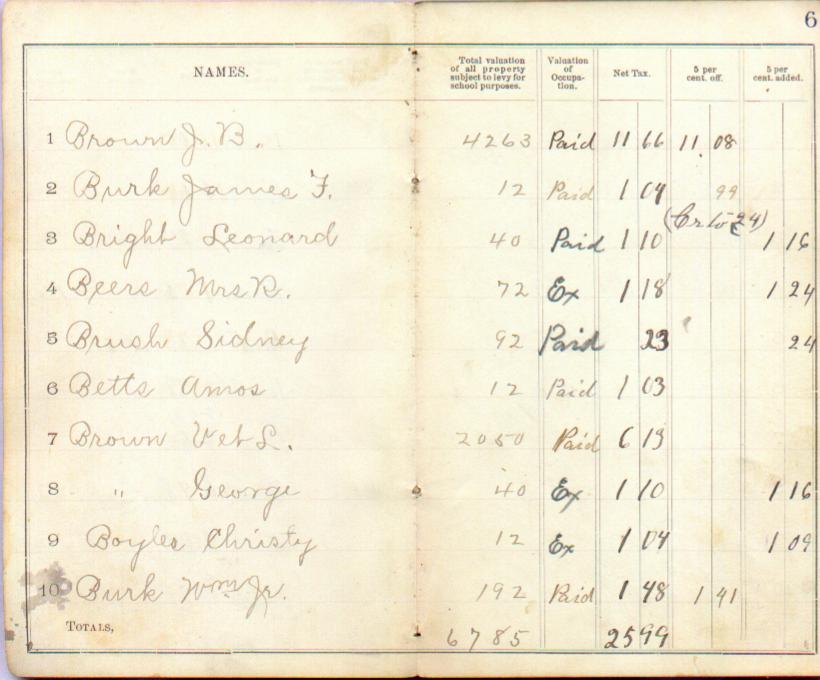 6
NAMES. Total valuation of all property subject to levy for school purposes. Valuation of Occupa- tion. Net Tax. 5 per cent. off. 5 per cent. added.
1 Brown J. B. 4263 Paid 11 66 11. 08
2 Burk James F. 12 Paid 1 04 99
(Cr to 24)
3 Bright Leonard 40 Paid 1 10 1 16
4 Beers Mrs R. 72 Ex 1 18 1 24
5 Brush Sidney 92 Paid 23 24
6 Betts Amos 12 Paid 1 03
7 Brown Vet L. 2050 Paid 6 13
8 " George 40 Ex 1 10 1 16
9 Boyles Christy 12 Ex 1 04 1 09
10 Burk Wm Jr. 192 Paid 1 48 1 41
TOTALS, 6785 25 99